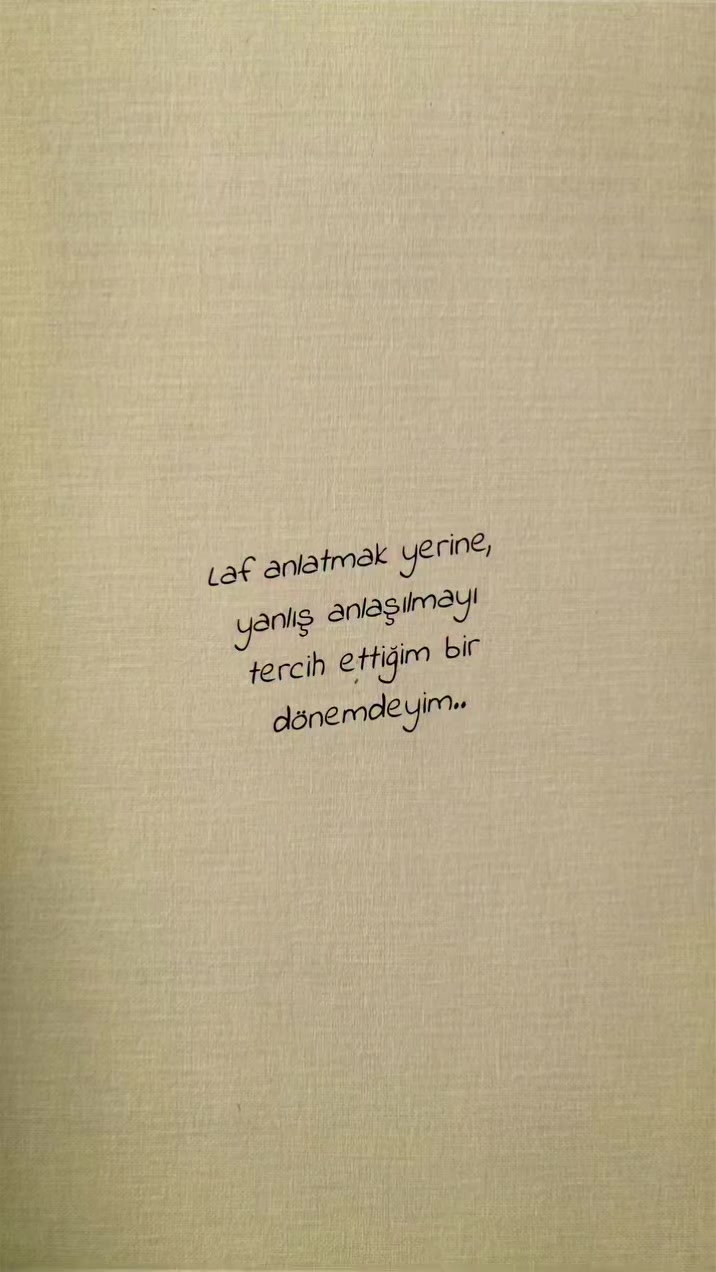 Laf anlatmak yerine,
yanlış anlaşılmayı
tercih ettiğim bir
dönemdeyim..